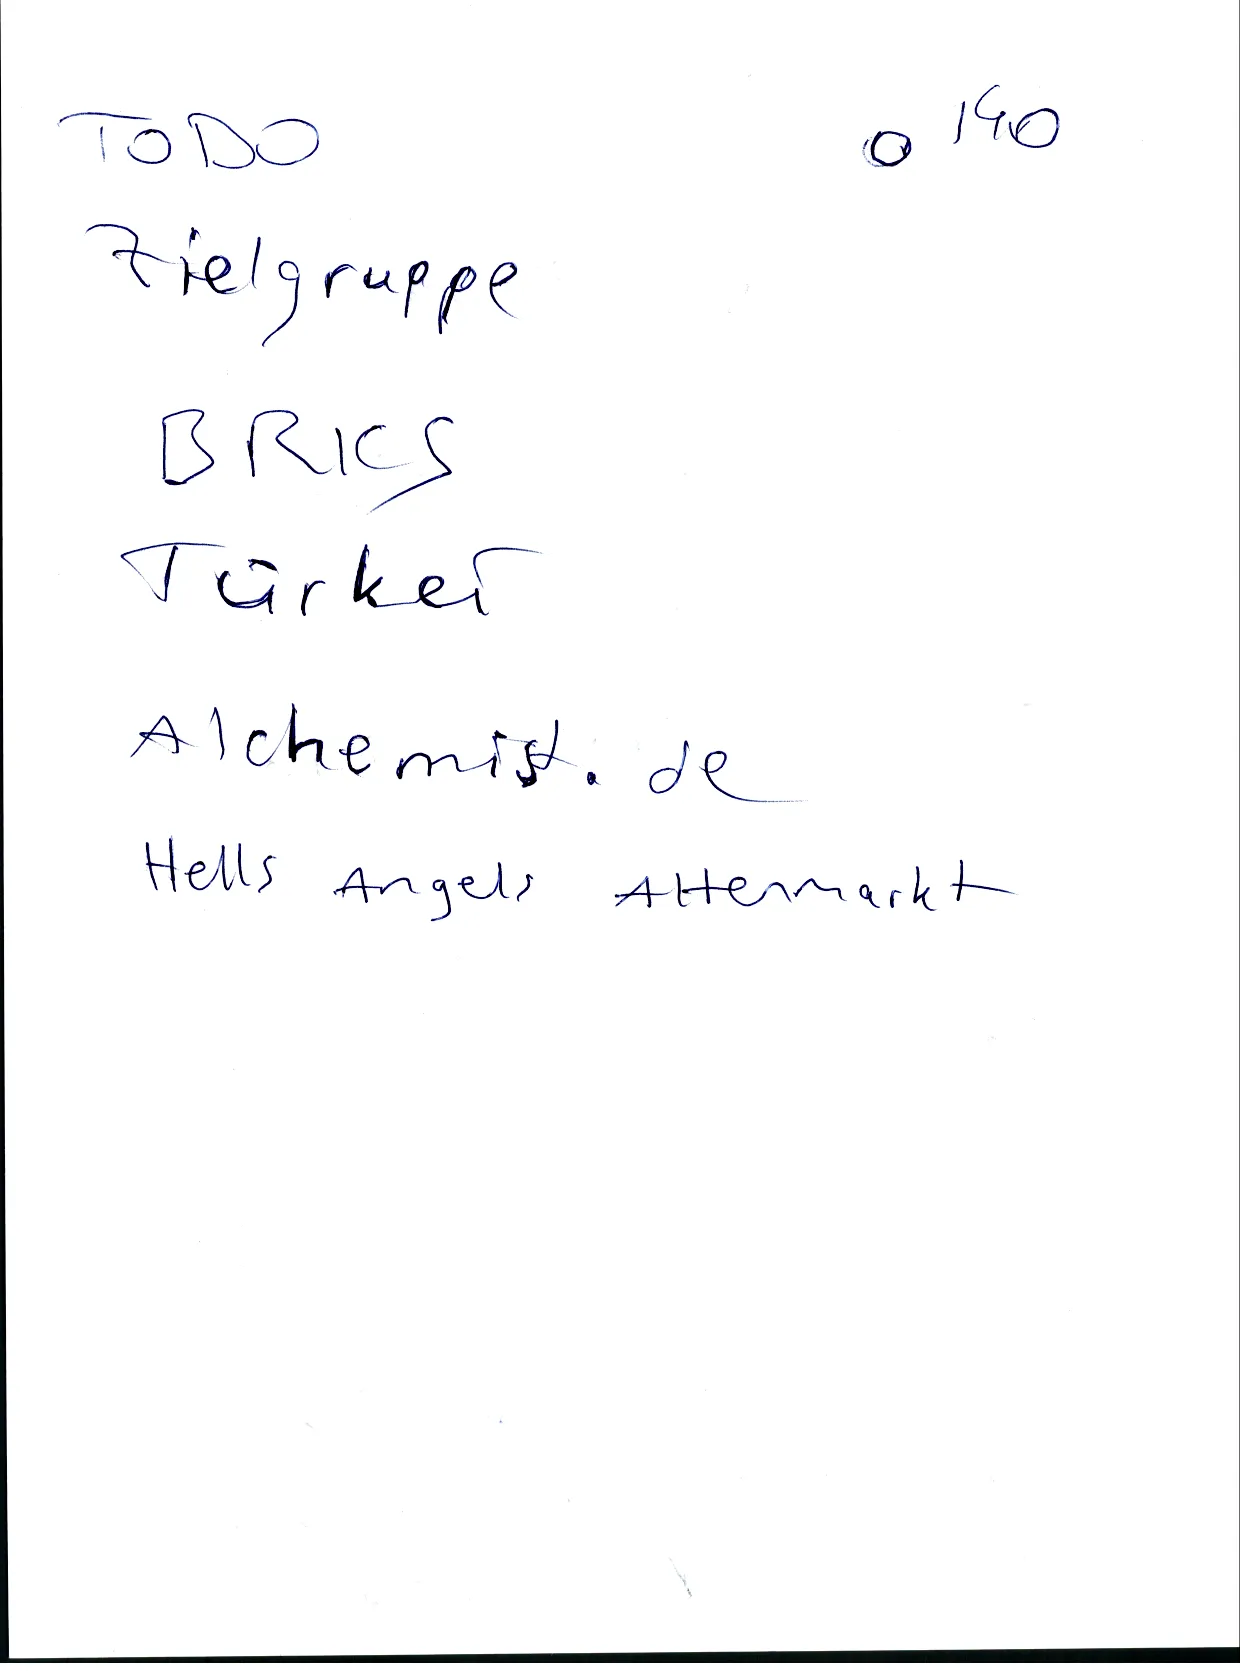 TODO
0 140
Zielgruppe
BRICS
Türkei
Alchemist.de
Hells Angels Altenmarkt